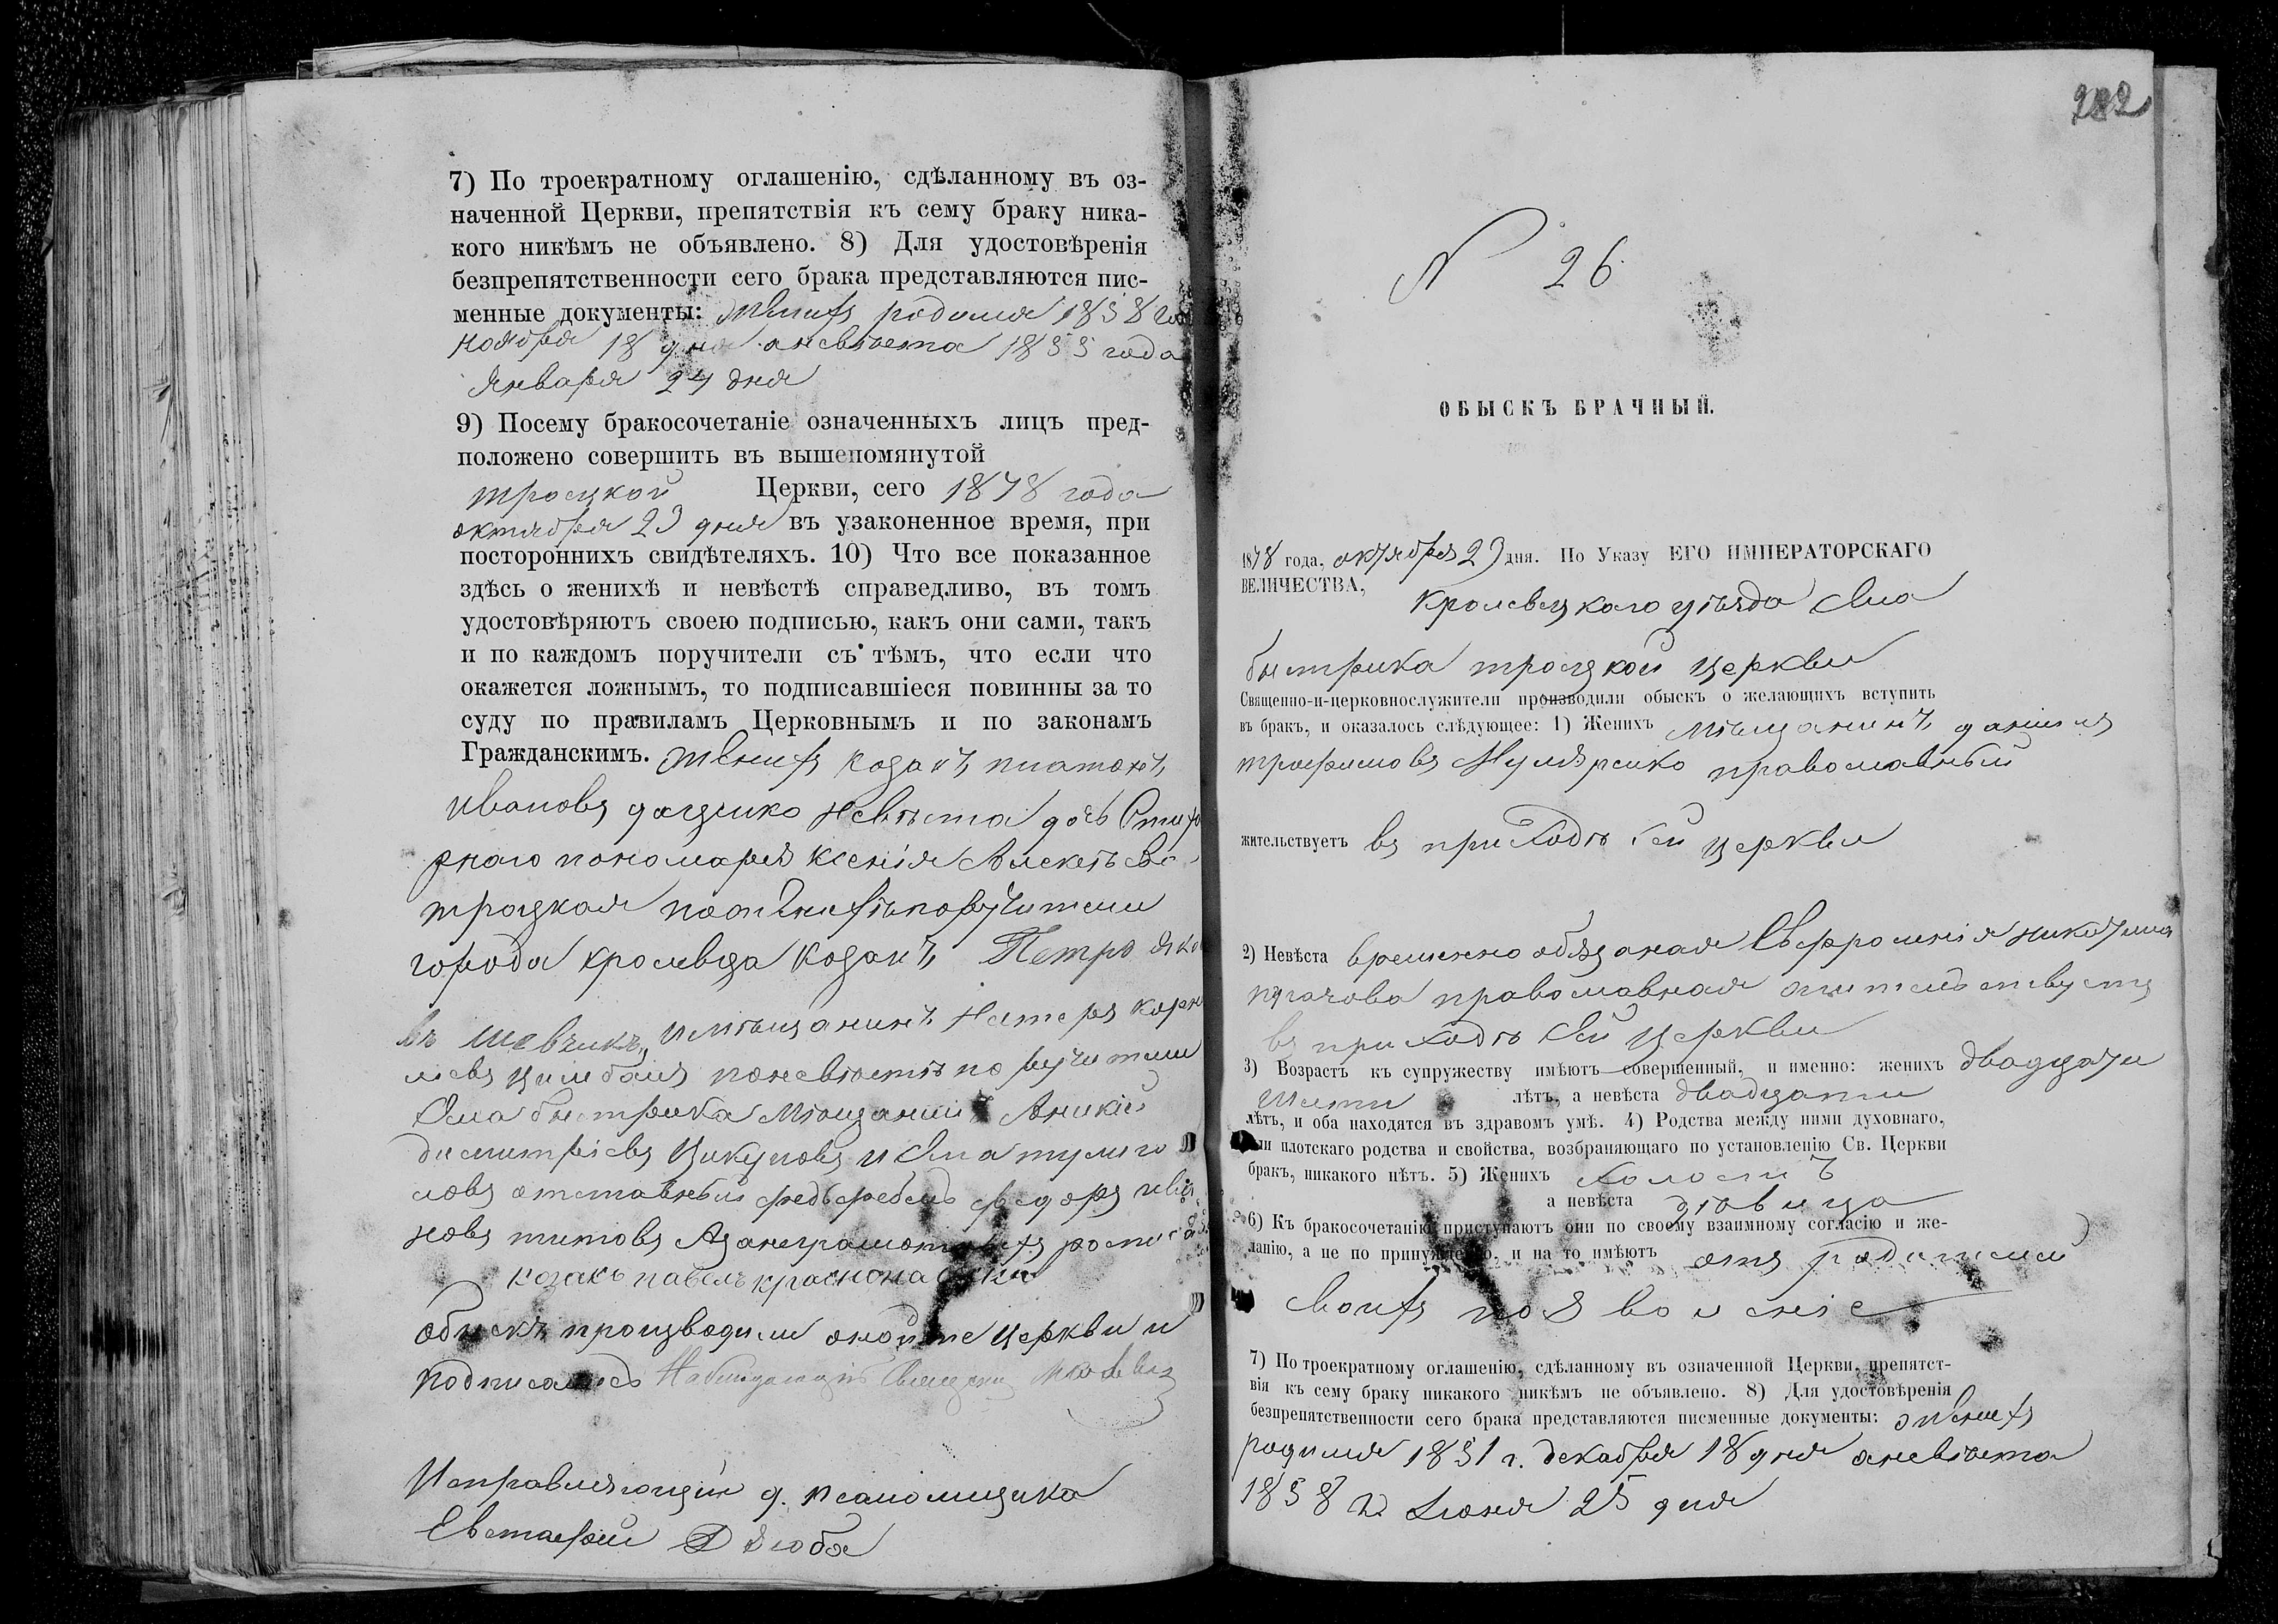 7) По троекратному оглашенію, сдѣланному въ оз-
наченной Церкви, препятствія къ сему браку ника-
кого никѣмъ не объявлено. 8) Для удостовѣренія
безпрепятственности сего брака представляются пис-
менные документы: женихъ родился 1858 го
ноября 18 дня а невѣста 1855 года
января 24 дня
9) Посему бракосочетаніе означенныхъ лицъ пред-
положено совершить въ вышепомянутой
троцкой Церкви, сего 1878 года
октября 29 дня въ узаконенное время, при
постороннихъ свидѣтеляхъ. 10) Что все показанное
здѣсь о женихѣ и невѣстѣ справедливо, въ томъ
удостовѣряютъ своею подписью, какъ они сами, такъ
и по каждомъ поручители съ тѣмъ, что если что
окажется ложнымъ, то подписавшіеся повинны за то
суду по правиламъ Церковнымъ и по законамъ
Гражданскимъ. женихъ козакъ платонъ
ивановъ даценко невѣста дочь
пономаря ксенія Алексѣева
троцкая по женихѣ поручители
города кролевца козакъ Петро Яко
въ Шевчикъ, и мѣщанинъ Нестеръ корн
ліевъ цимбалъ по невѣстѣ поручители
Яма быстрика мѣщанинъ Аникій
димитріевъ и Яма
отставный фельдфебель федоръ ива
новъ титовъ А за неграмотныхъ росписался
козакъ павелъ
Обыскъ производили оной же церкви и
подписались
Исправляющій д. псаломщика
Евстафій Дзюба
282
N 26
ОБЫСКЪ БРАЧНЫЙ.
1878 года, октября 29 дня. По Указу ЕГО ИМПЕРАТОРСКАГО
ВЕЛИЧЕСТВА, Кролевецкаго уѣзда Яма
быстрика троцкой церкви
Священно-и-церковнослужители производили обыскъ о желающихъ вступить
въ бракъ, и оказалось слѣдующее: 1) Женихъ мѣщанинъ даніилъ
трофимовъ православный
жительствуетъ въ приходѣ сей церкви
2) Невѣста временно обязаная Евфросинія никитина
пугачова православная жительствуетъ
въ приходѣ сей церкви
3) Возрастъ къ супружеству имѣютъ совершенный, и именно: женихъ двадцати
шести лѣтъ, а невѣста двадцати
лѣтъ, и оба находятся въ здравомъ умѣ. 4) Родства между ними духовнаго,
или плотскаго родства и свойства, возбраняющаго по установленію Св. Церкви
бракъ, никакого нѣтъ. 5) Женихъ холостъ
а невѣста дѣвица
6) Къ бракосочетанію приступаютъ они по своему взаимному согласію и же-
ланію, а не по принужденію, и на то имѣютъ отъ родителей
своихъ позволеніе
7) По троекратному оглашенію, сдѣланному въ означенной Церкви, препятст-
вія къ сему браку никакого никѣмъ не объявлено. 8) Для удостовѣренія
безпрепятственности сего брака представляются писменные документы: женихъ
родился 1851 г. декабря 18 дня а невѣста
1858 г. Іюня 25 дня